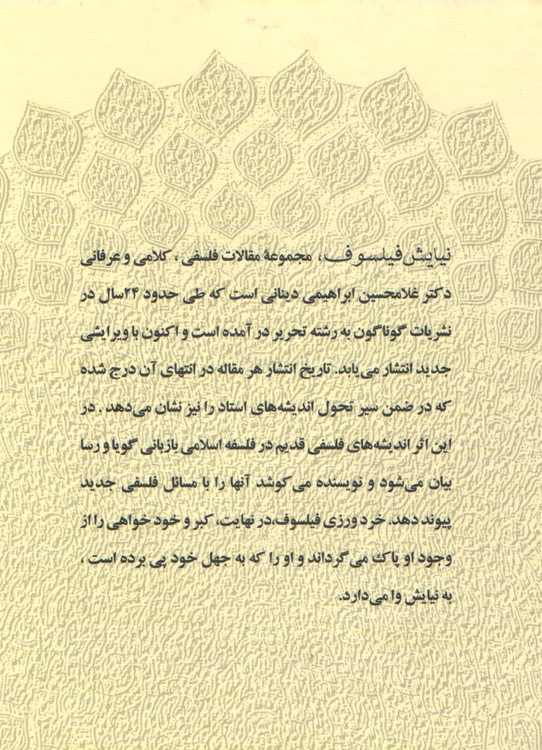 نیایش فیلسوف، مجموعهٔ مقالات فلسفی، کلامی و عرفانی
دکتر غلامحسین ابراهیمی دینانی است که طی حدود ۲۴سال در
نشریات گوناگون به رشته تحریر در آمده است و اکنون با ویرایشی
جدید انتشار می‌یابد. تاریخ انتشار هر مقاله در انتهای آن درج شده
که در ضمن سیر تحول اندیشه‌های استاد را نیز نشان می‌دهد. در
این اثر اندیشه‌های فلسفی قدیم در فلسفه اسلامی بازبانی گویا و رسا
بیان می‌شود و نویسنده می‌کوشد آنها را با مسائل فلسفی جدید
پیوند دهد. خرد ورزی فیلسوف،در نهایت، کبر و خود خواهی را از
وجود او پاک می‌گرداند و او را که به جهل خود پی برده است،
به نیایش وا می‌دارد.